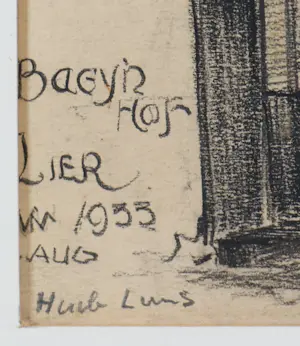 Bagyn
Hof
Lier
1933
Aug
Huib Luns